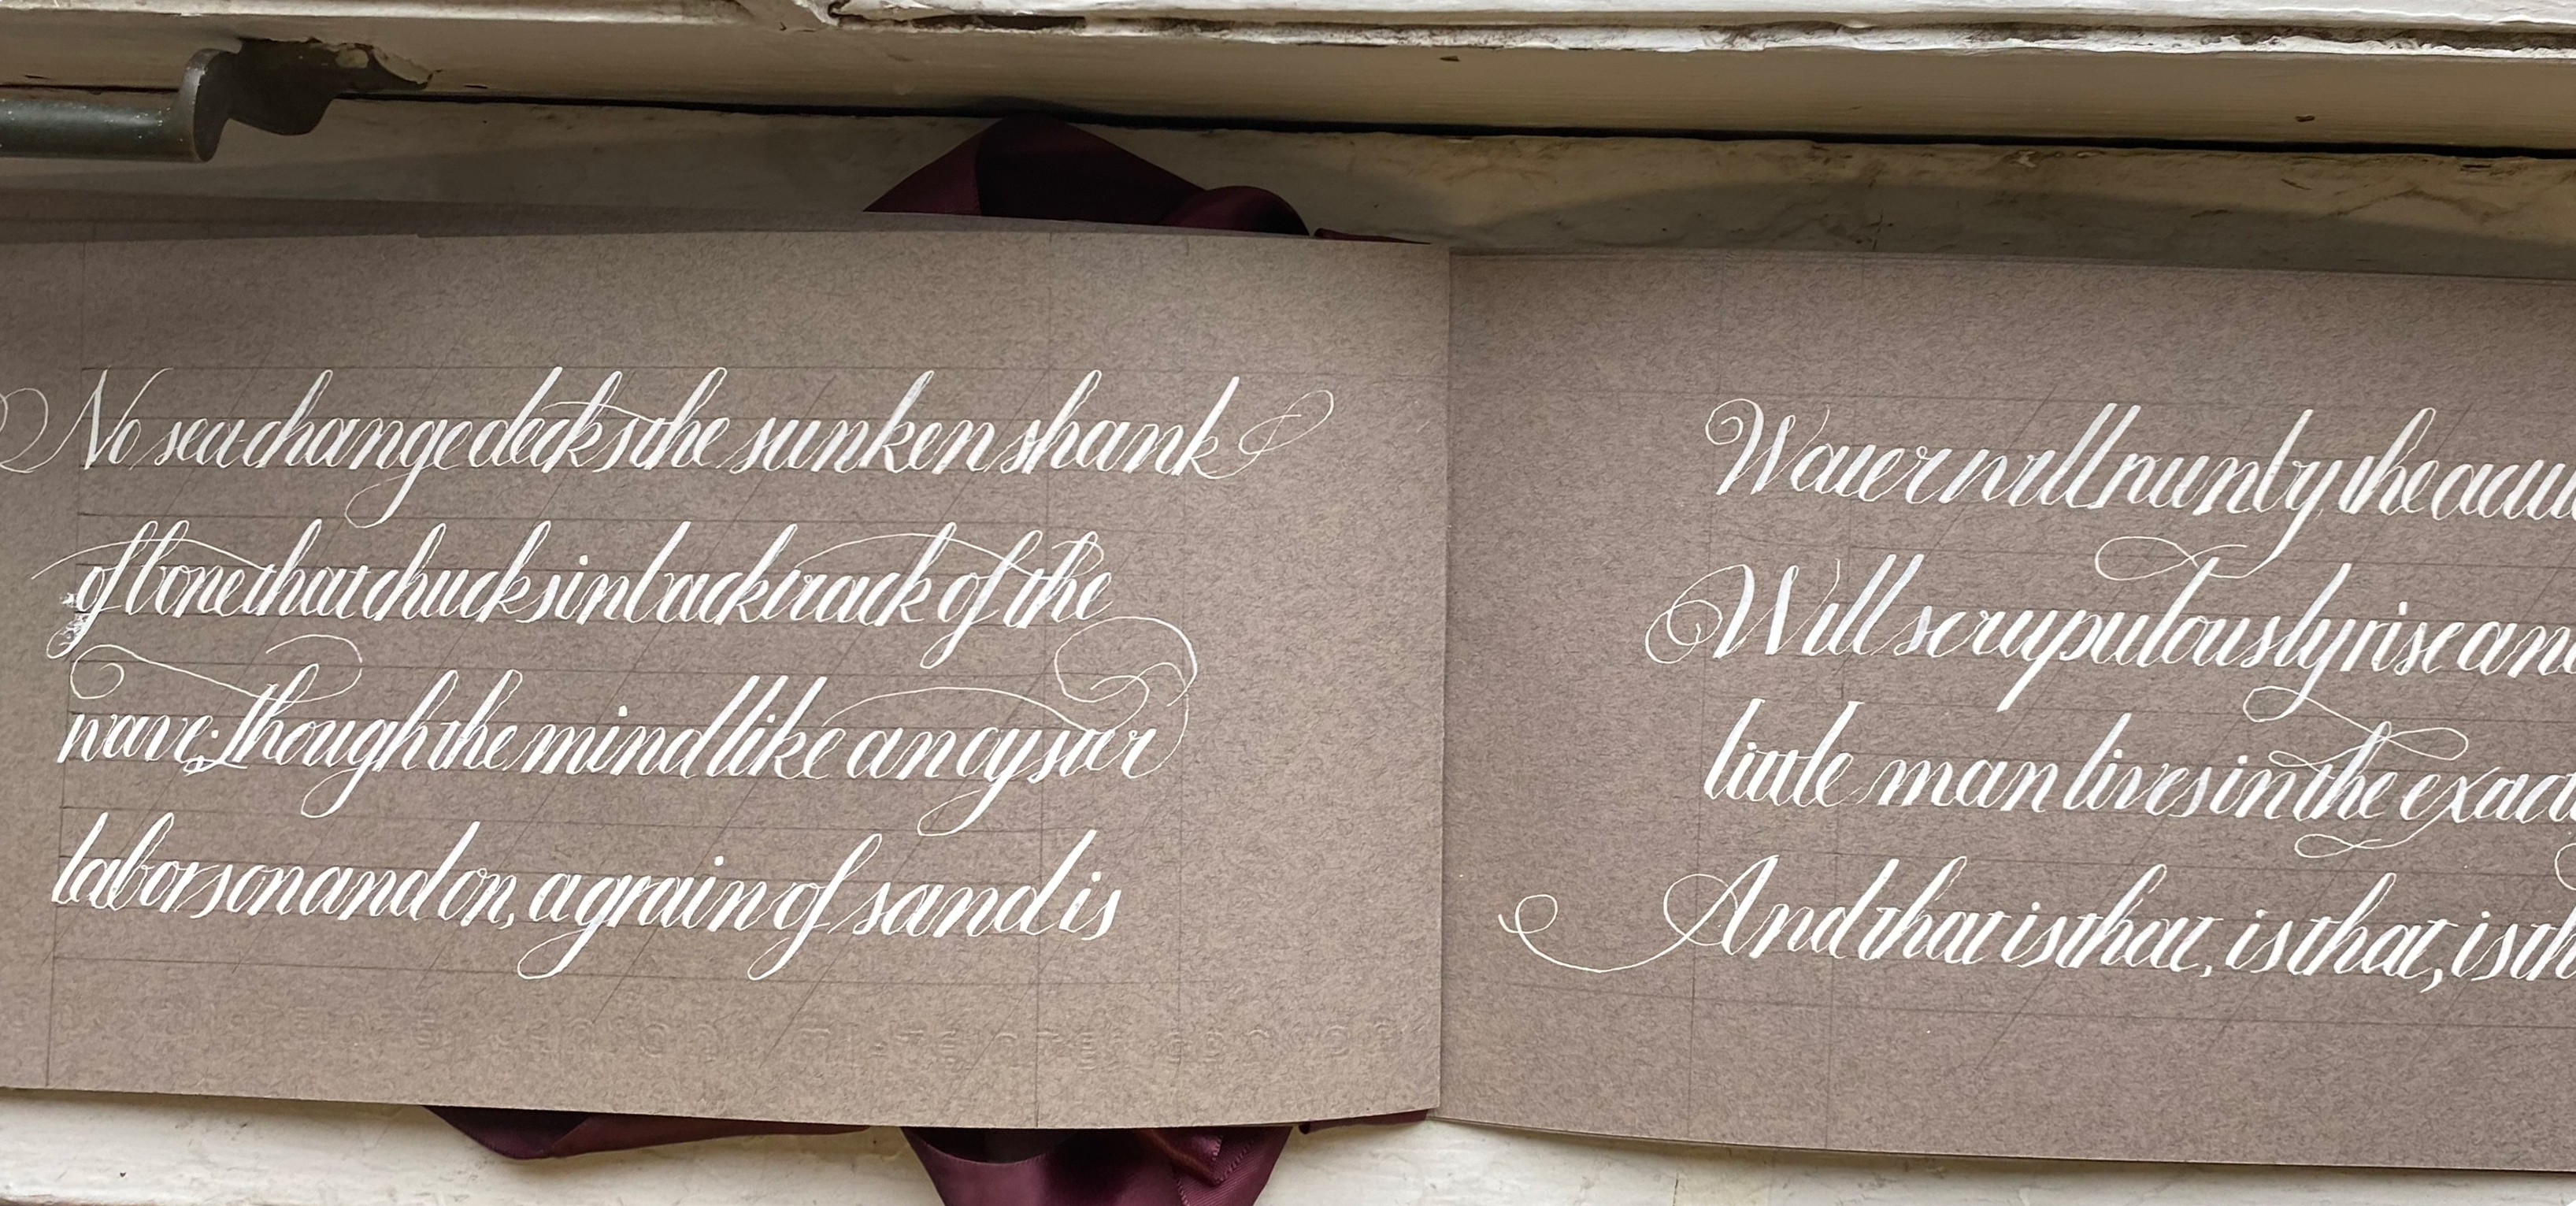 No sea change decks the sunken shank
of bone that chucks in backtrack of the
wave; though the mind like an oyster
labors on and on, a grain of sand is
Water will run by the
Will scrupulously rise
little man lives in the
And that is that, is that, is